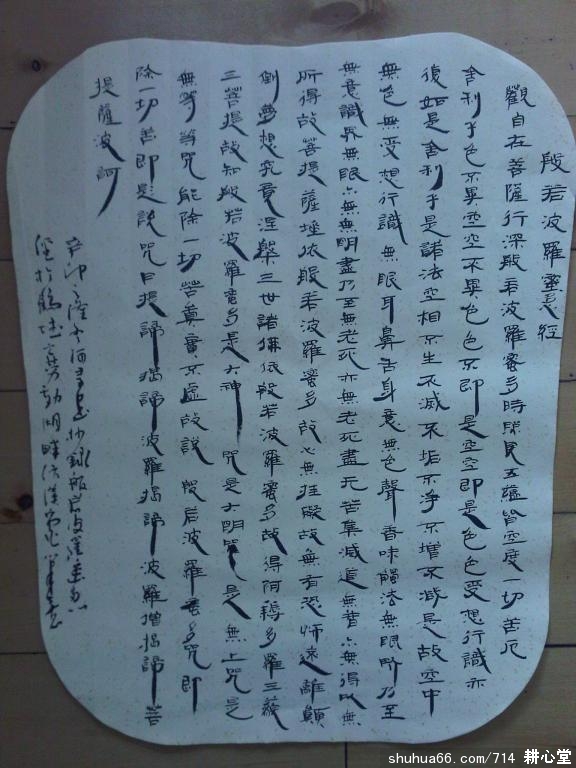 般若波羅蜜多心經
觀自在菩薩行深般若波羅蜜多時照見五蘊皆空度一切苦厄
舍利子色不異空空不異色色不即是空空即是色色受想行識亦
復如是舍利子是諸法空相不生不滅不垢不淨不增不減是故空中
無色無受想行識無眼耳鼻舌身意無色聲香味觸法無眼界乃至
無意識界無眼亦無無明盡乃至無老死亦無老死盡无苦集滅道無智亦無得以無
所得故菩提薩埵依般若波羅蜜多故心無挂礙故無有恐怖遠離顛
倒夢想究竟涅槃三世諸佛依般若波羅蜜多故得阿耨多羅三藐
三菩提故知般若波羅蜜多是大神咒是大明咒是無上咒是
無等等咒能除一切苦真實不虛故說般若波羅蜜多咒即
除一切苦即是說咒曰揭諦揭諦波羅揭諦波羅僧揭諦菩
提薩波訶
shuhua66.com/714 耕心堂